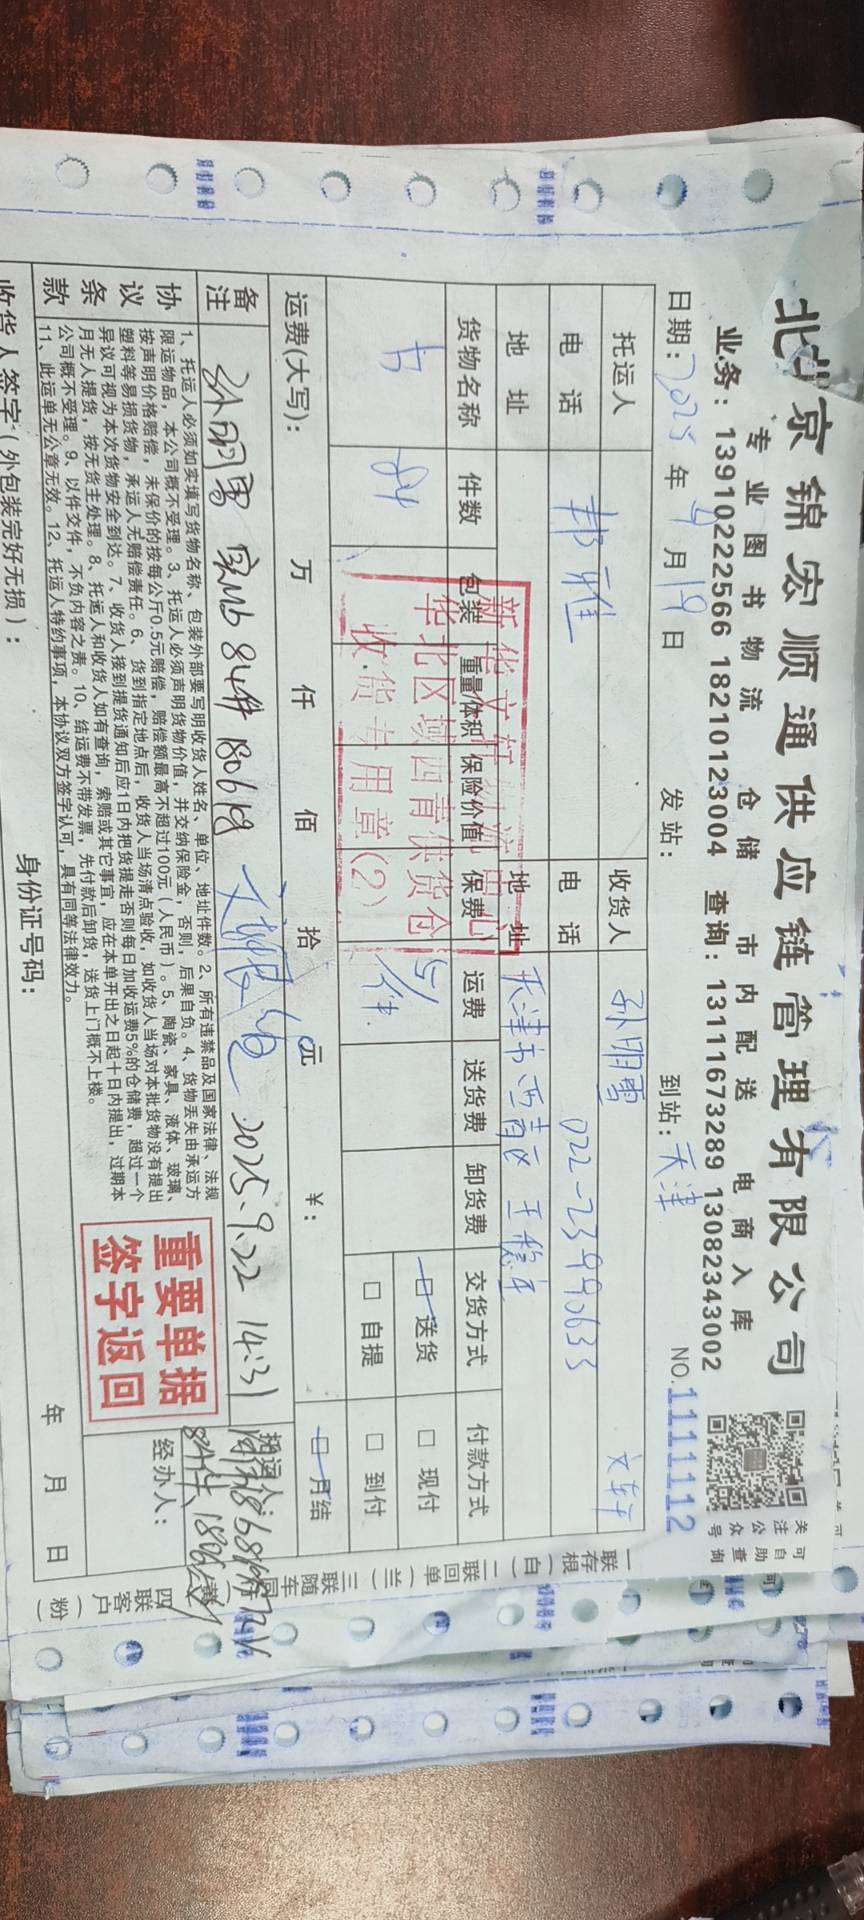 北京锦宏顺通供应链管理有限公司
专业图书物流 仓储 市内配送 电商入库
业务：13910222566 18210123004 查询：13111673289 13082343002
关注公众号
可自助查询
日期：2025年9月19日 发站： 到站：天津 NO.1111112
托运人 邦雅 收货人 孙明雪 文轩
电话 电话 022-23990633
地址 地址 天津市西青区王稳庄
货物名称 件数 包装 重量体积 保险价值 保费 运费 送货费 卸货费 交货方式 付款方式
书 84 /件 送货 自提 现付 到付 月结
新华文轩
华北区域西青供货仓
收货专用章(2)
运费(大写)： 万 仟 佰 拾 元 ¥：
备注 孙明雪 实收84件 1806kg 2025.9.22 14:31
托运人：
84件
经办人：
协议条款
1、托运人必须如实填写货物名称、包装外部要写明收货人姓名、单位、地址件数。2、所有违禁品及国家法律、法规
限运物品，本公司概不受理。3、托运人必须声明货物价值，并交纳保险金，否则，后果自负。4、货物丢失由承运方
按声明价格赔偿，未保价的按每公斤0.5元赔偿，赔偿额最高不超过100元（人民币）。5、陶瓷、家具、液体、玻璃、
塑料等易损货物，承运人无赔偿责任。6、货到指定地点后，收货人当场清点验收，如收货人当场对本批货物没有提出
异议可视为本次货物安全到达。7、收货人接到提货通知后应1日内把货提走否则每日加收运费5%的仓储费，超过一个
月无人提货，按无货主处理。8、托运人和收货人如有查询，索赔或其它事宜，应在本单开出之日起十日内提出，过期本
公司概不受理。9、以件交件，不负内容之责。10、结运费不带发票，先付款后卸货，送货上门概不上楼。
11、此运单无公章无效。12、托运人特约事项，本协议双方签字认可，具有同等法律效力。
重要单据
签字返回
收货人签字(外包装完好无损)： 身份证号码： 年 月 日
一联存根(白) 二联回单(兰) 三联随车 四联客户(粉)